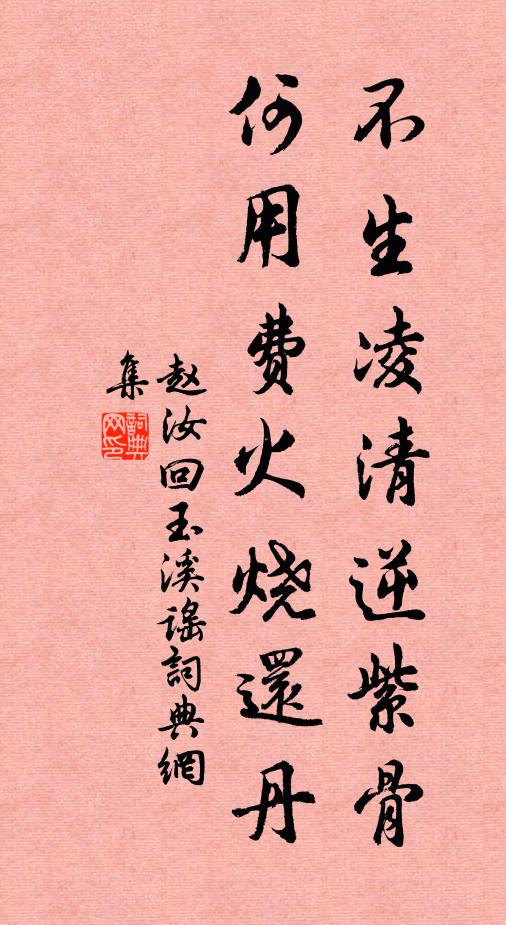 不生凌清逆紫骨
何用费火烧還丹
赵汝回玉溪谣詞典網
集
詞典网印